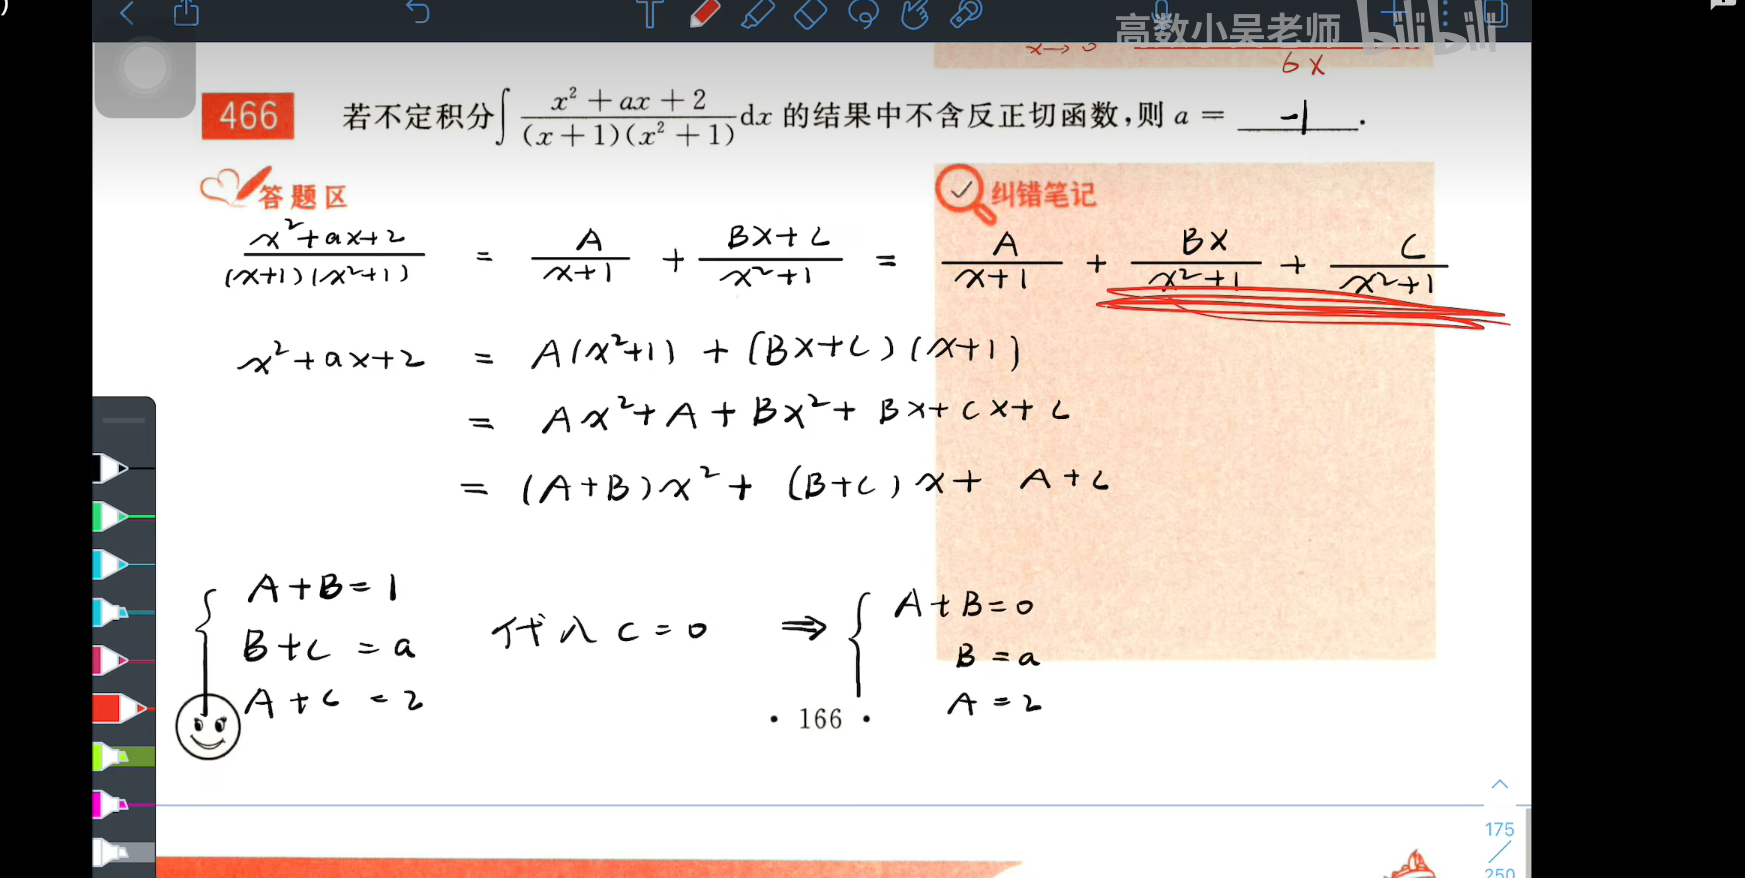 高数小吴老师 bilibili
x→0
6x
466 若不定积分∫ (x²+ax+2)/((x+1)(x²+1)) dx 的结果中不含反正切函数,则 a = -1 .
答题区
纠错笔记
(x²+ax+2)/((x+1)(x²+1)) = A/(x+1) + (Bx+C)/(x²+1) = A/(x+1) + Bx/(x²+1) + C/(x²+1)
x²+ax+2 = A(x²+1) + (Bx+C)(x+1)
= Ax²+A+Bx²+Bx+Cx+C
= (A+B)x²+(B+C)x+A+C
A+B=1
B+C=a
A+C=2
代入 C=0 ⇒
A+B=0
B=a
A=2
· 166 ·
175/250